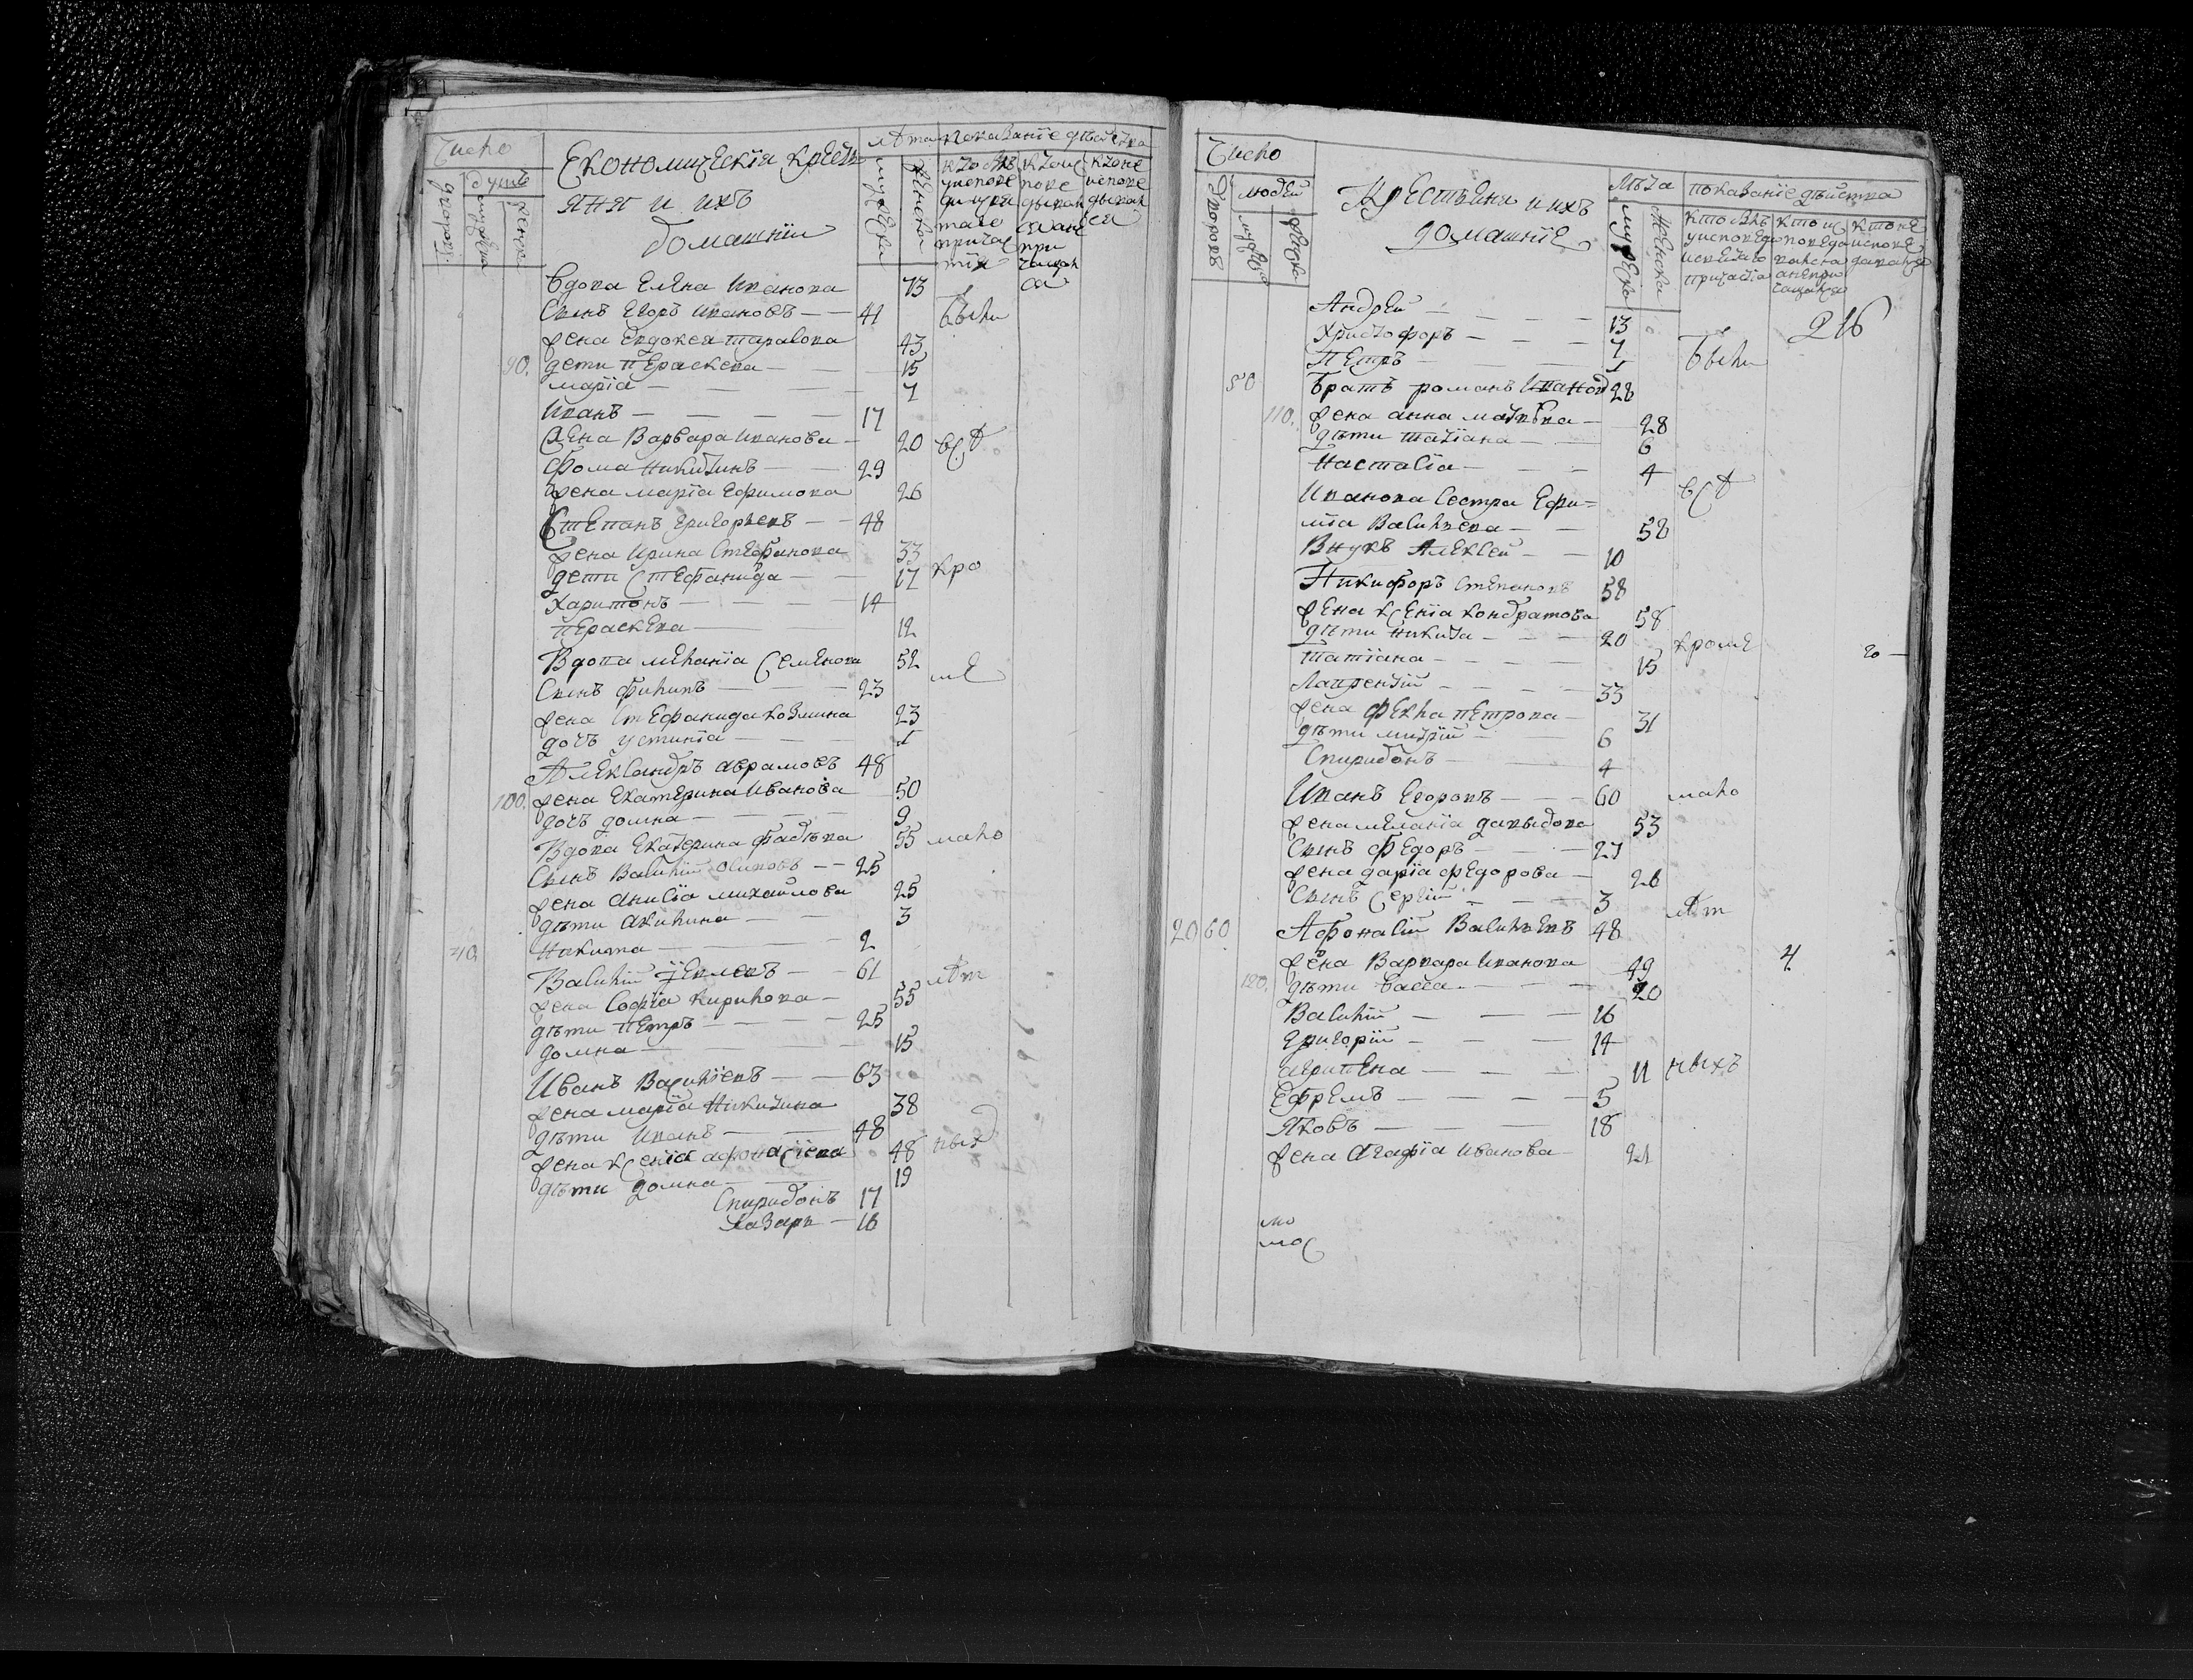 Число
Економическія кресть
яня и ихъ
домашнии
лѣта показаніе дѣйства
дворовъ
душъ
мужеска
женска
мужеска
женска
кто былъ
у испове
ди и свя
таго
причас
тія
кто ис
пове
дывал
ся а не
при
чащал
ся
кто не
испове
дывал
ся
Вдова Елена Иванова 73
Сынъ Егоръ Ивановъ — — 41 Были
жена Евдокея 43
90. дети Пераскева — 15
Марія — — — 7
Иванъ — — — — 17
Жена Варвара Иванова — 20 всѣ
Фома Никитинъ — — 29
жена Марія Ефимова 26
Степанъ Григорьевъ — — 48
жена Ирина Стефанова 33
дети Стефанида — — 17 кро
Харитонъ — — — 14
Пераскева — 12
Вдова Меланія Семенова 52 ме
Сынъ Филипъ — — — 23
жена Стефанида Козмина 23
дочь Устинія — — — 1
Александръ Аврамовъ 48
100. жена Екатерина Иванова 50
дочь Домна — — — 9
Вдова Екатерина Фадѣева 55 мало
Сынъ Василий Осиповъ — — 25
жена Анисіа Михайлова 25
дѣти Акилина — — 3
40. Никита — — — 2
Василий — — 61 лѣт
жена Софіа Кирилова — 55
дѣти Петръ — — — — 25
Домна — — — — 15
Иванъ Васильевъ — — 63
жена Маріа Никитина 38
дѣти Иванъ — — — 48 ных
жена Ксеніа Афонасіева 48
дѣти Домна — — 19
Спиридонъ 17
Лазарь — 16
Число
Крестьяня и ихъ
домашніе
лѣта показаніе дѣйства
дворовъ
людей
мужеска
женска
мужеска
женска
кто былъ
у исповеди
и святаго
причастіа
кто ис
поведа
вался
а не при
чащался
кто не
испове
давался
216
Андрей — — — — — 13
Христофоръ — — — 7 Были
Петръ — — — 1
50 Братъ Романъ Иванов 28
110. жена Анна Матвѣева — 28
дѣти Татіана — — 6
Настасіа — — — 4 всѣ
Иванова сестра Ефи=
міа Васильева — — 58
Внукъ Алексей — — 10
Никифоръ Степановъ 58
жена Ксеніа Кондратова 58
дѣти Никита — — — 20 кроме 20 —
Татіана — — — — 15
Лаврентій — — — — 33
жена Фекла Петрова — 31
дѣти Митрій — — — 6
Спиридонъ — — — 4
Иванъ Егоровъ — — — 60 мало
жена Меланіа Давыдова 53
Сынъ Федоръ — — — 27
жена Даріа Федорова — 26
Сынъ Сергій — — — 3 лѣт
20 60 Афонасій Васильевъ 48
жена Варвара Иванова 49 4
120. дѣти Васса — — — — 20
Василій — — — 16
Григорій — — — 14
Агрипена — — — 11 ныхъ
Ефремъ — — — — 5
Яковъ — — — — 18
жена Агафіа Иванова — 21
мо
мос